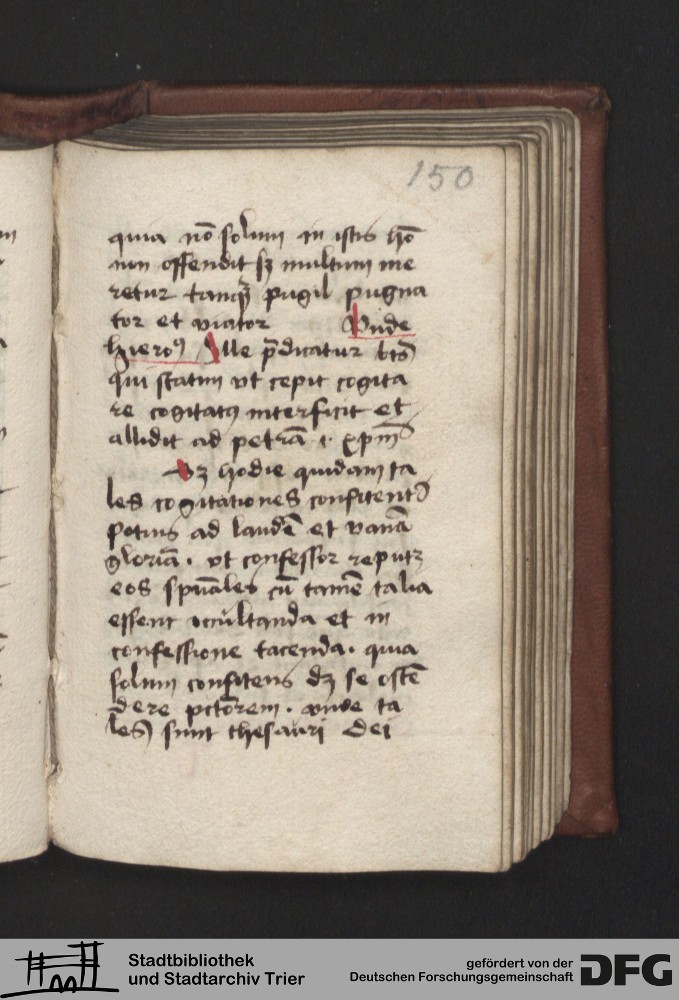 150
quia nō solum in istis hō
nun offendit sꝫ multum me
retur tanqꝫ pugil pugna
tor et viator Vnde
hieroꝰ Ille p̄dicatur bt̄s
qui statim vt cepit cogita
re cogitatꝰ interficit et
allidit ad petrā .i. xp̄m
Sꝫ hodie quidam ta
les cogitationes confitent᷑
potius ad laudē et vanā
gloriā. vt confessor reputꝫ
eos spūales cū tamē talia
essent occultanda et in
confessione tacenda. quia
solum confitens dꝫ se ostē
dere pctōrem. vnde ta
les sunt thesauri dei
Stadtbibliothek
und Stadtarchiv Trier
gefördert von der
Deutschen Forschungsgemeinschaft
DFG